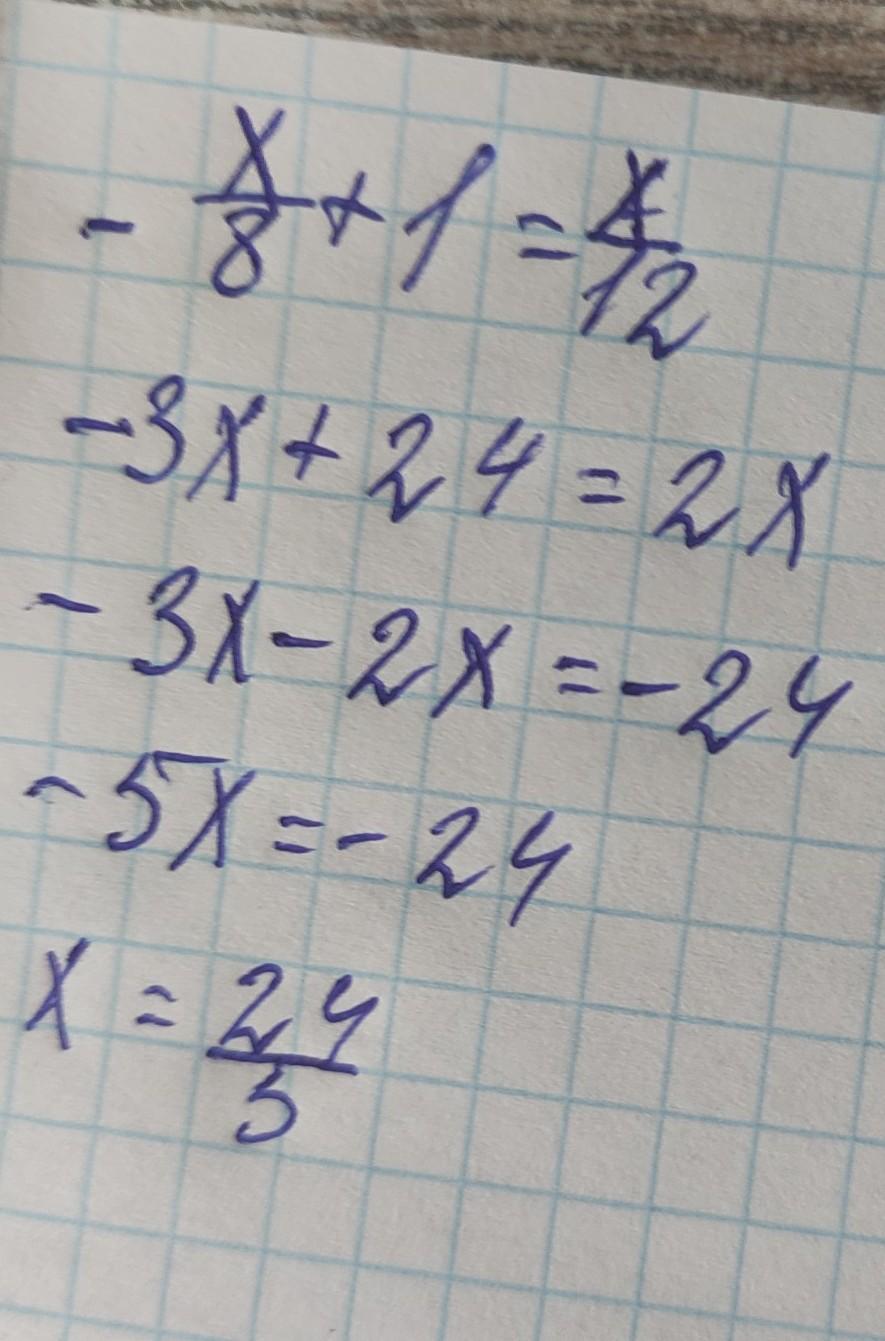 - x/8 + 1 = x/12
-3x + 24 = 2x
- 3x - 2x = - 24
- 5x = - 24
x = 24/5